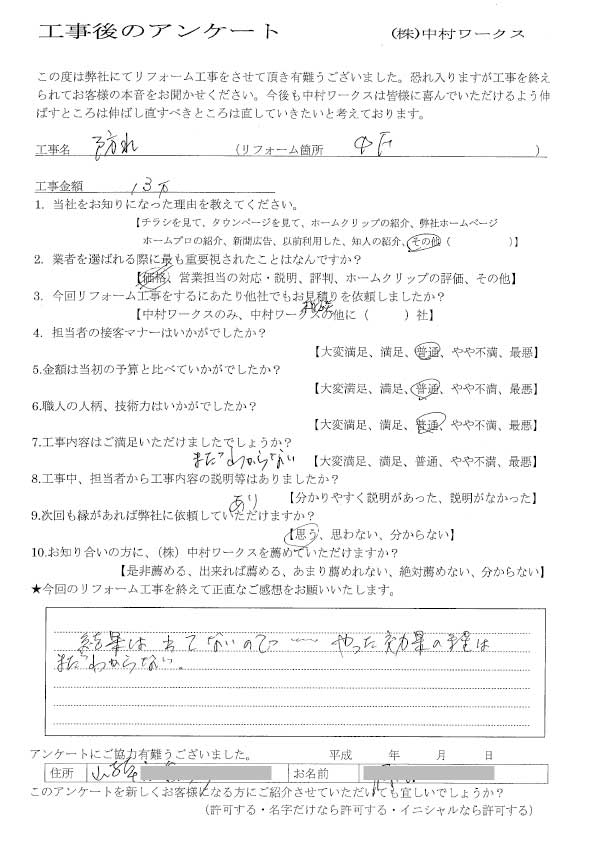 工事後のアンケート (株)中村ワークス
この度は弊社にてリフォーム工事をさせて頂き有難うございました。恐れ入りますが工事を終え
られてお客様の本音をお聞かせください。今後も中村ワークスは皆様に喜んでいただけるよう伸
ばすところは伸ばし直すべきところは直していきたいと考えております。
工事名 (リフォーム箇所 )
工事金額 13万
1. 当社をお知りになった理由を教えてください。
【チラシを見て、タウンページを見て、ホームクリップの紹介、弊社ホームページ
ホームプロの紹介、新聞広告、以前利用した、知人の紹介、その他( )】
2. 業者を選ばれる際に最も重要視されたことはなんですか?
【価格、営業担当の対応・説明、評判、ホームクリップの評価、その他】
3. 今回リフォーム工事をするにあたり他社でもお見積りを依頼しましたか?
【中村ワークスのみ、中村ワークスの他に( )社】
4. 担当者の接客マナーはいかがでしたか?
【大変満足、満足、普通、やや不満、最悪】
5.金額は当初の予算と比べていかがでしたか?
【大変満足、満足、普通、やや不満、最悪】
6.職人の人柄、技術力はいかがでしたか?
【大変満足、満足、普通、やや不満、最悪】
7.工事内容はご満足いただけましたでしょうか?
まだわからない 【大変満足、満足、普通、やや不満、最悪】
8.工事中、担当者から工事内容の説明等はありましたか?
あり 【分かりやすく説明があった、説明がなかった】
9.次回も縁があれば弊社に依頼していただけますか?
【思う、思わない、分からない】
10.お知り合いの方に、(株)中村ワークスを薦めていただけますか?
【是非薦める、出来れば薦める、あまり薦めれない、絶対薦めない、分からない】
★今回のリフォーム工事を終えて正直なご感想をお願いいたします。
結果は出てないので やった効果の程は
まだわからない。
アンケートにご協力有難うございました。 平成 年 月 日
住所 お名前
このアンケートを新しくお客様になる方にご紹介させていただいても宜しいでしょうか?
(許可する・名字だけなら許可する・イニシャルなら許可する)